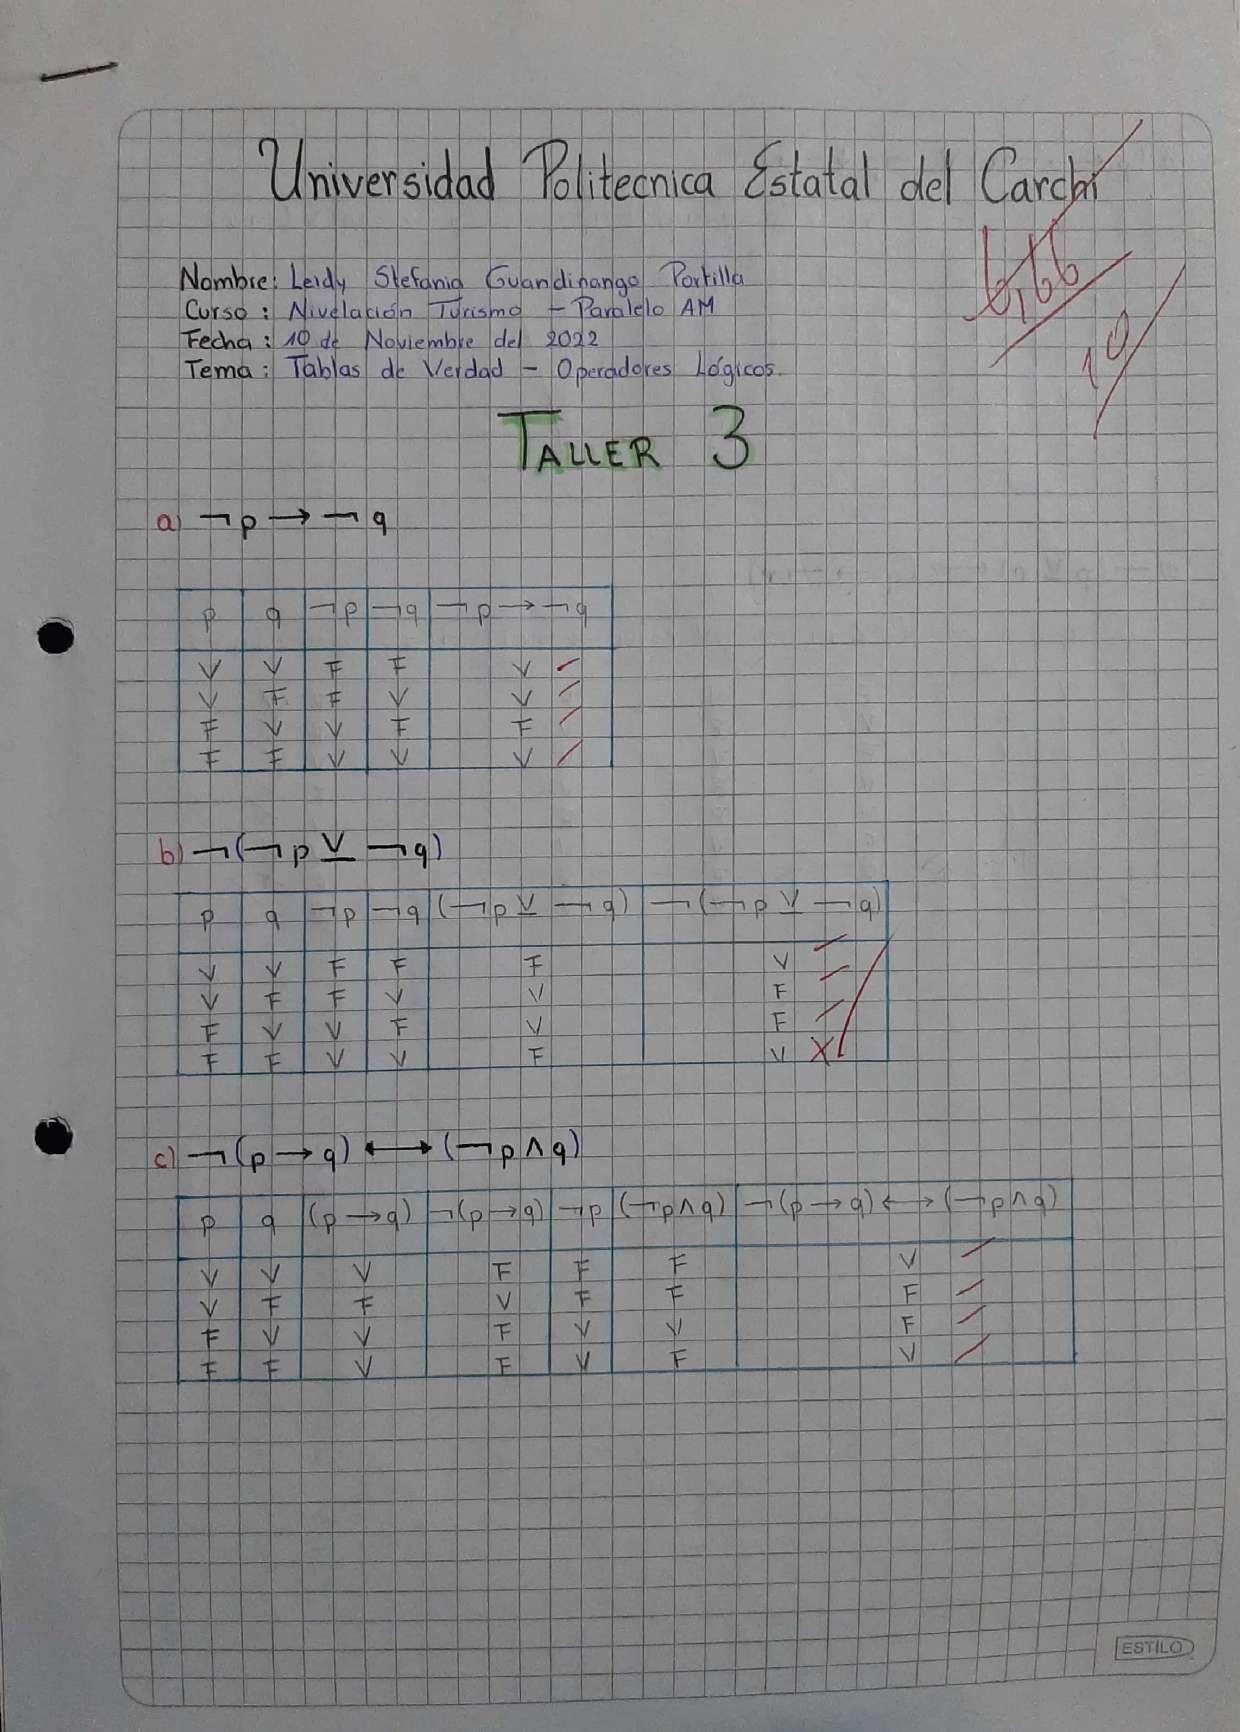 Universidad Politecnica Estatal del Carchi
6,66
10
Nombre: Leidy Stefania Guandinango Portilla
Curso: Nivelación Turismo - Paralelo AM
Fecha: 10 de Noviembre del 2022
Tema: Tablas de Verdad - Operadores Lógicos.
TALLER 3
a) ¬p → ¬q
p q ¬p ¬q ¬p → ¬q
V V F F V
V F F V V
F V V F F
F F V V V
b) ¬(¬p ⊻ ¬q)
p q ¬p ¬q (¬p ⊻ ¬q) ¬(¬p ⊻ ¬q)
V V F F F V
V F F V V F
F V V F V F
F F V V F V X
c) ¬(p → q) ⟷ (¬p ∧ q)
p q (p → q) ¬(p → q) ¬p (¬p ∧ q) ¬(p → q) ⟷ (¬p ∧ q)
V V V F F F V
V F F V F F F
F V V F V V F
F F V F V F V
ESTILO